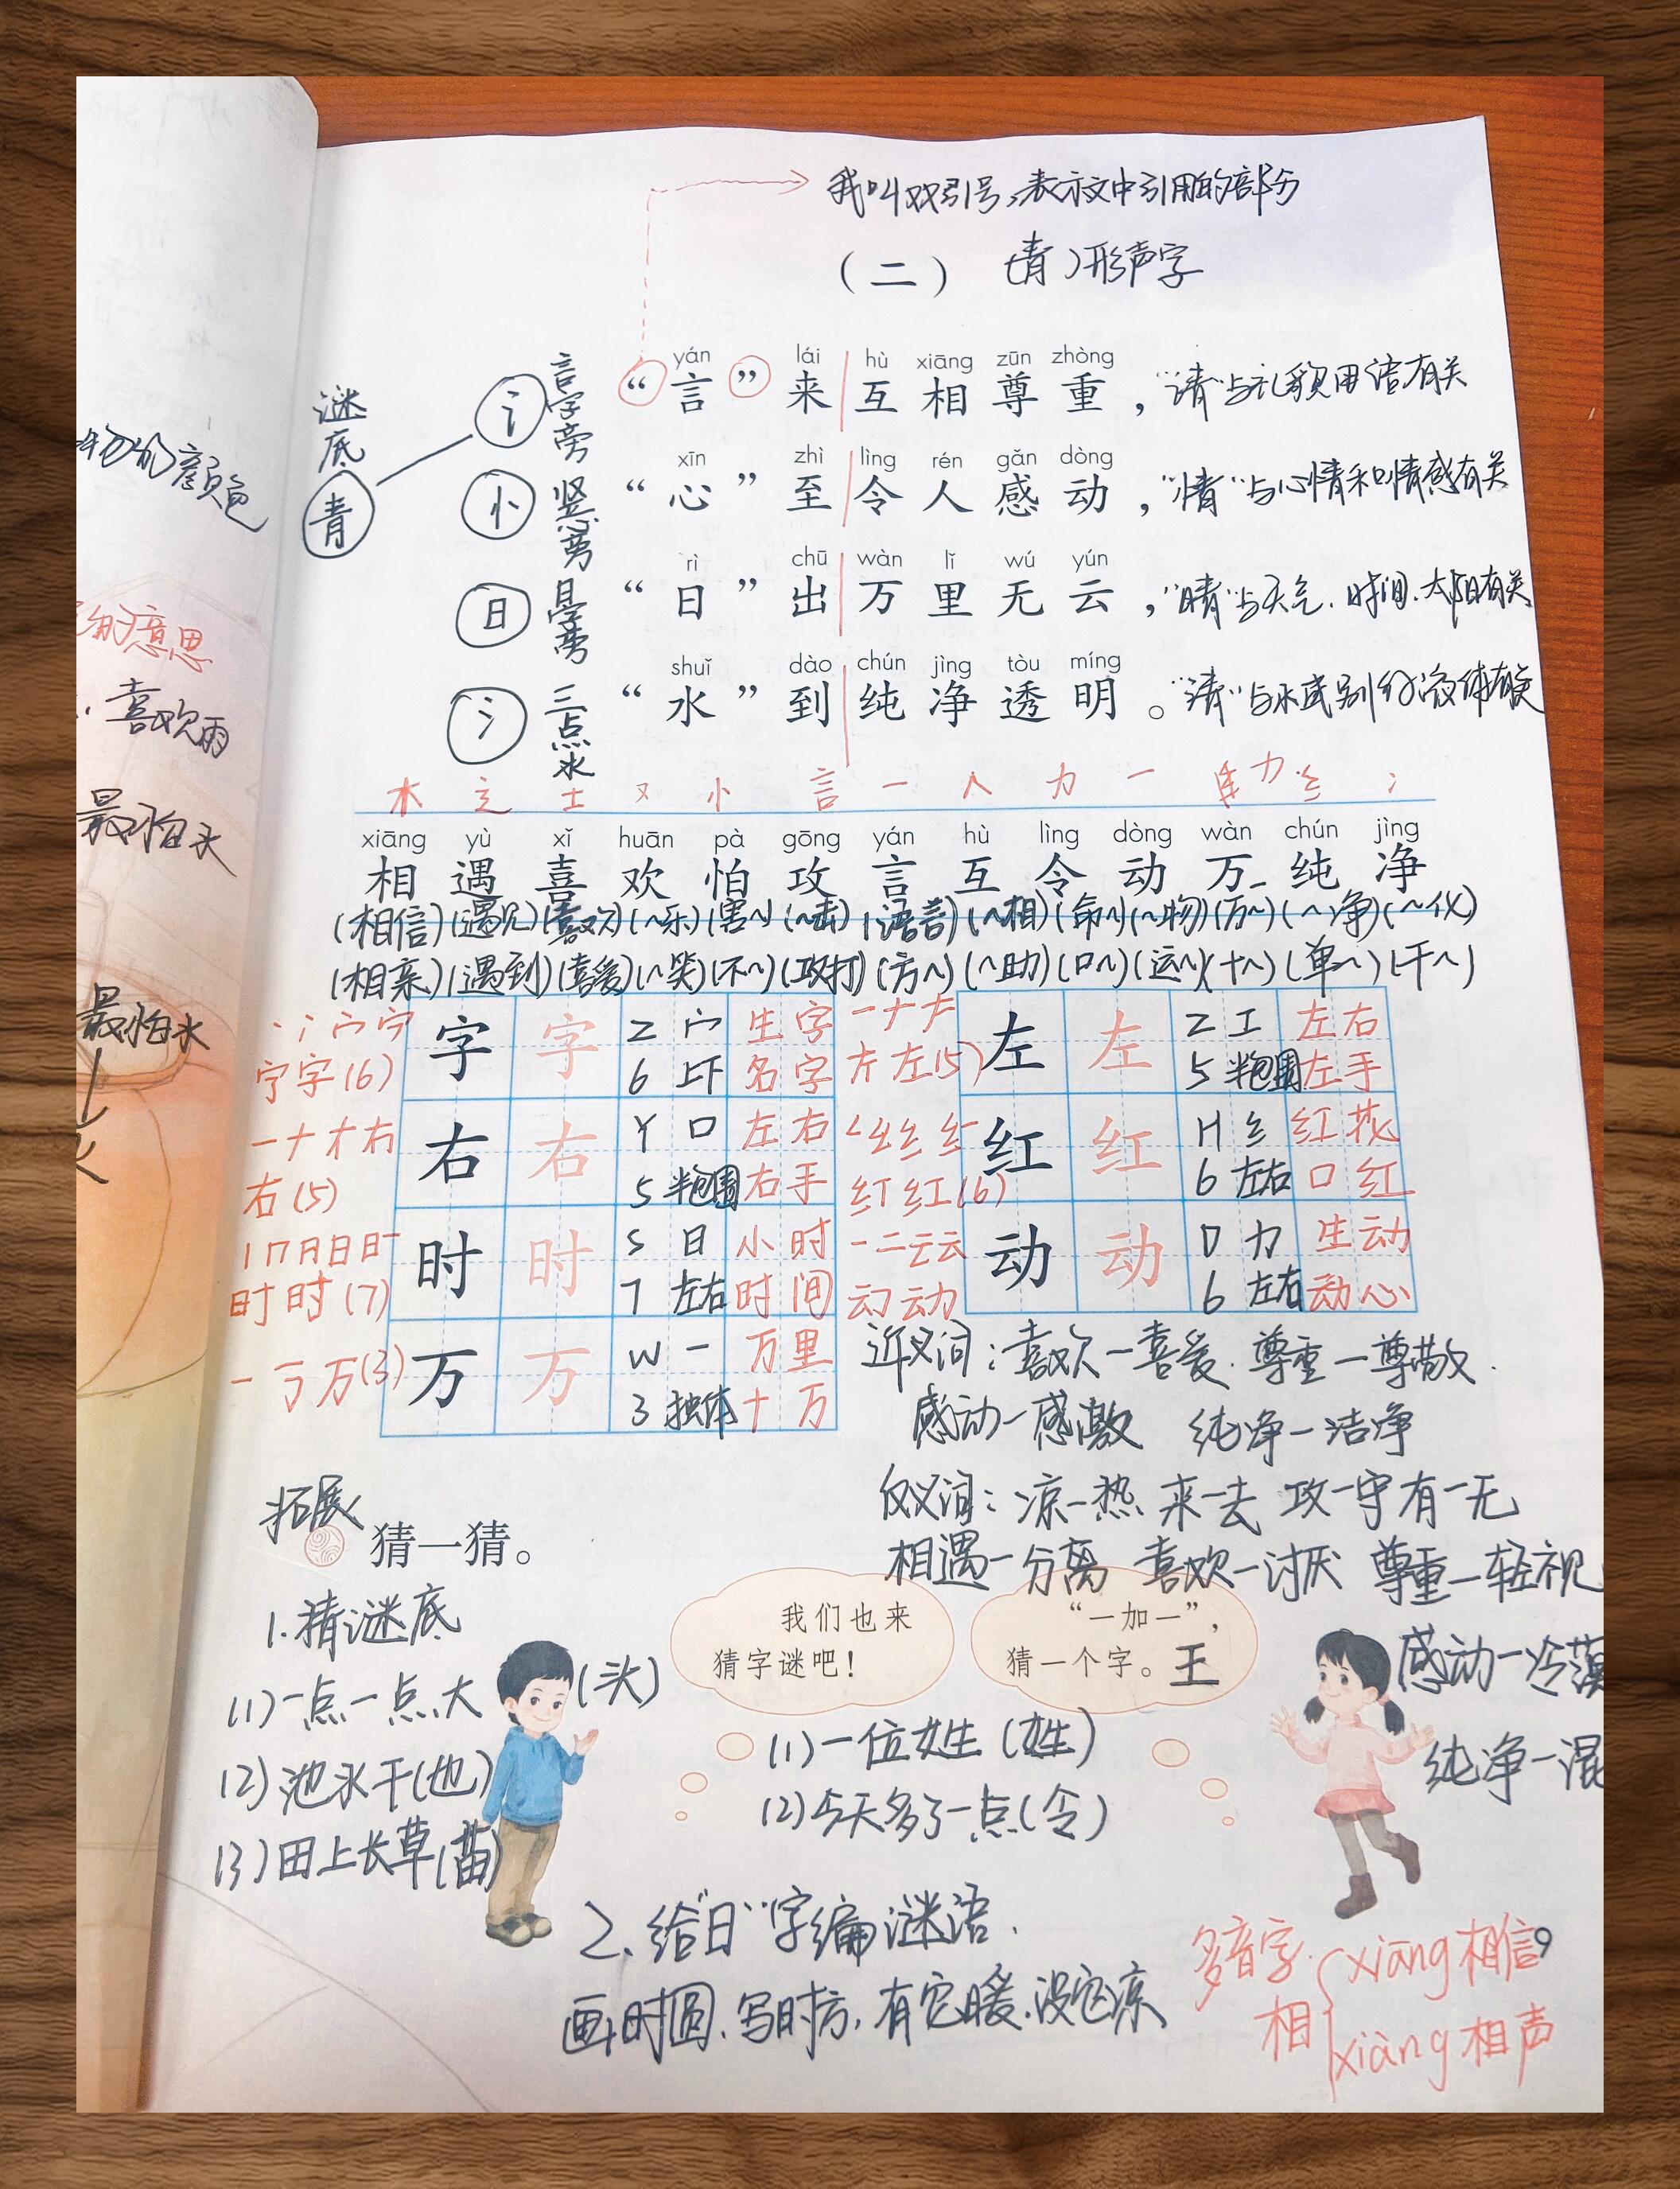 我叫双引号,表示文中引用的部分
（二） (青)形声字
谜底
青
讠 言字旁
yán lái hù xiāng zūn zhòng
“言”来互相尊重，“请”与礼貌用语有关
忄 竖心旁
xīn zhì lìng rén gǎn dòng
“心”至令人感动，“情”与心情和情感有关
日 日字旁
rì chū wàn lǐ wú yún
“日”出万里无云，“晴”与天气、时间、太阳有关
氵 三点水
shuǐ dào chún jìng tòu míng
“水”到纯净透明。“清”与水或别的液体有关
木 辶 士 又 忄 言 一 人 力 一 力 纟 冫
xiāng yù xǐ huān pà gōng yán hù lìng dòng wàn chún jìng
相 遇 喜 欢 怕 攻 言 互 令 动 万 纯 净
(相信)(遇见)(喜欢)(~乐)(害~)(~击)(语言)(~相)(命~)(~物)(万~)(~净)(~化)
(相亲)(遇到)(喜爱)(~笑)(不~)(攻打)(方~)(~助)(口~)(运~)(十~)(单~)(干~)
字 字 Z 宀 生字
宁字(6) 6 上下 名字
左 左 Z 工 左右
左(5) 5 半包围 左手
右 右 Y 口 左右
右(5) 5 半包围 右手
红 红 H 纟 红花
红红(6) 6 左右 口红
时 时 S 日 小时
时时(7) 7 左右 时间
动 动 D 力 生动
动动 6 左右 动心
万 万 W 一 万里
万(3) 3 独体 十万
近义词：喜欢—喜爱. 尊重—尊敬.
感动—感激 纯净—洁净
反义词：凉—热 来—去 攻—守 有—无
相遇—分离 喜欢—讨厌 尊重—轻视
感动—冷漠
纯净—混
拓展
猜一猜。
1.猜谜底
(1)一点一点大 (头)
(2)池水干(也)
(3)田上长草(苗)
我们也来
猜字谜吧！
“一加一”，
猜一个字。王
(1)一位女生 (姓)
(2)今天多了一点(令)
2.给“日”字编谜语.
画时圆.写时方,有它暖.没它凉
多音字.
相
xiāng 相信
xiàng 相声
9
物的颜色
的意思
喜欢雨
最怕水
最怕水
火